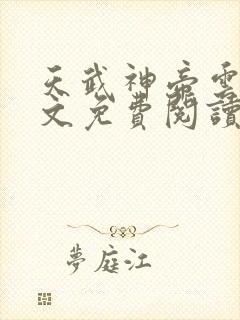 天武神帝雲
文免費閱讀
夢庭江